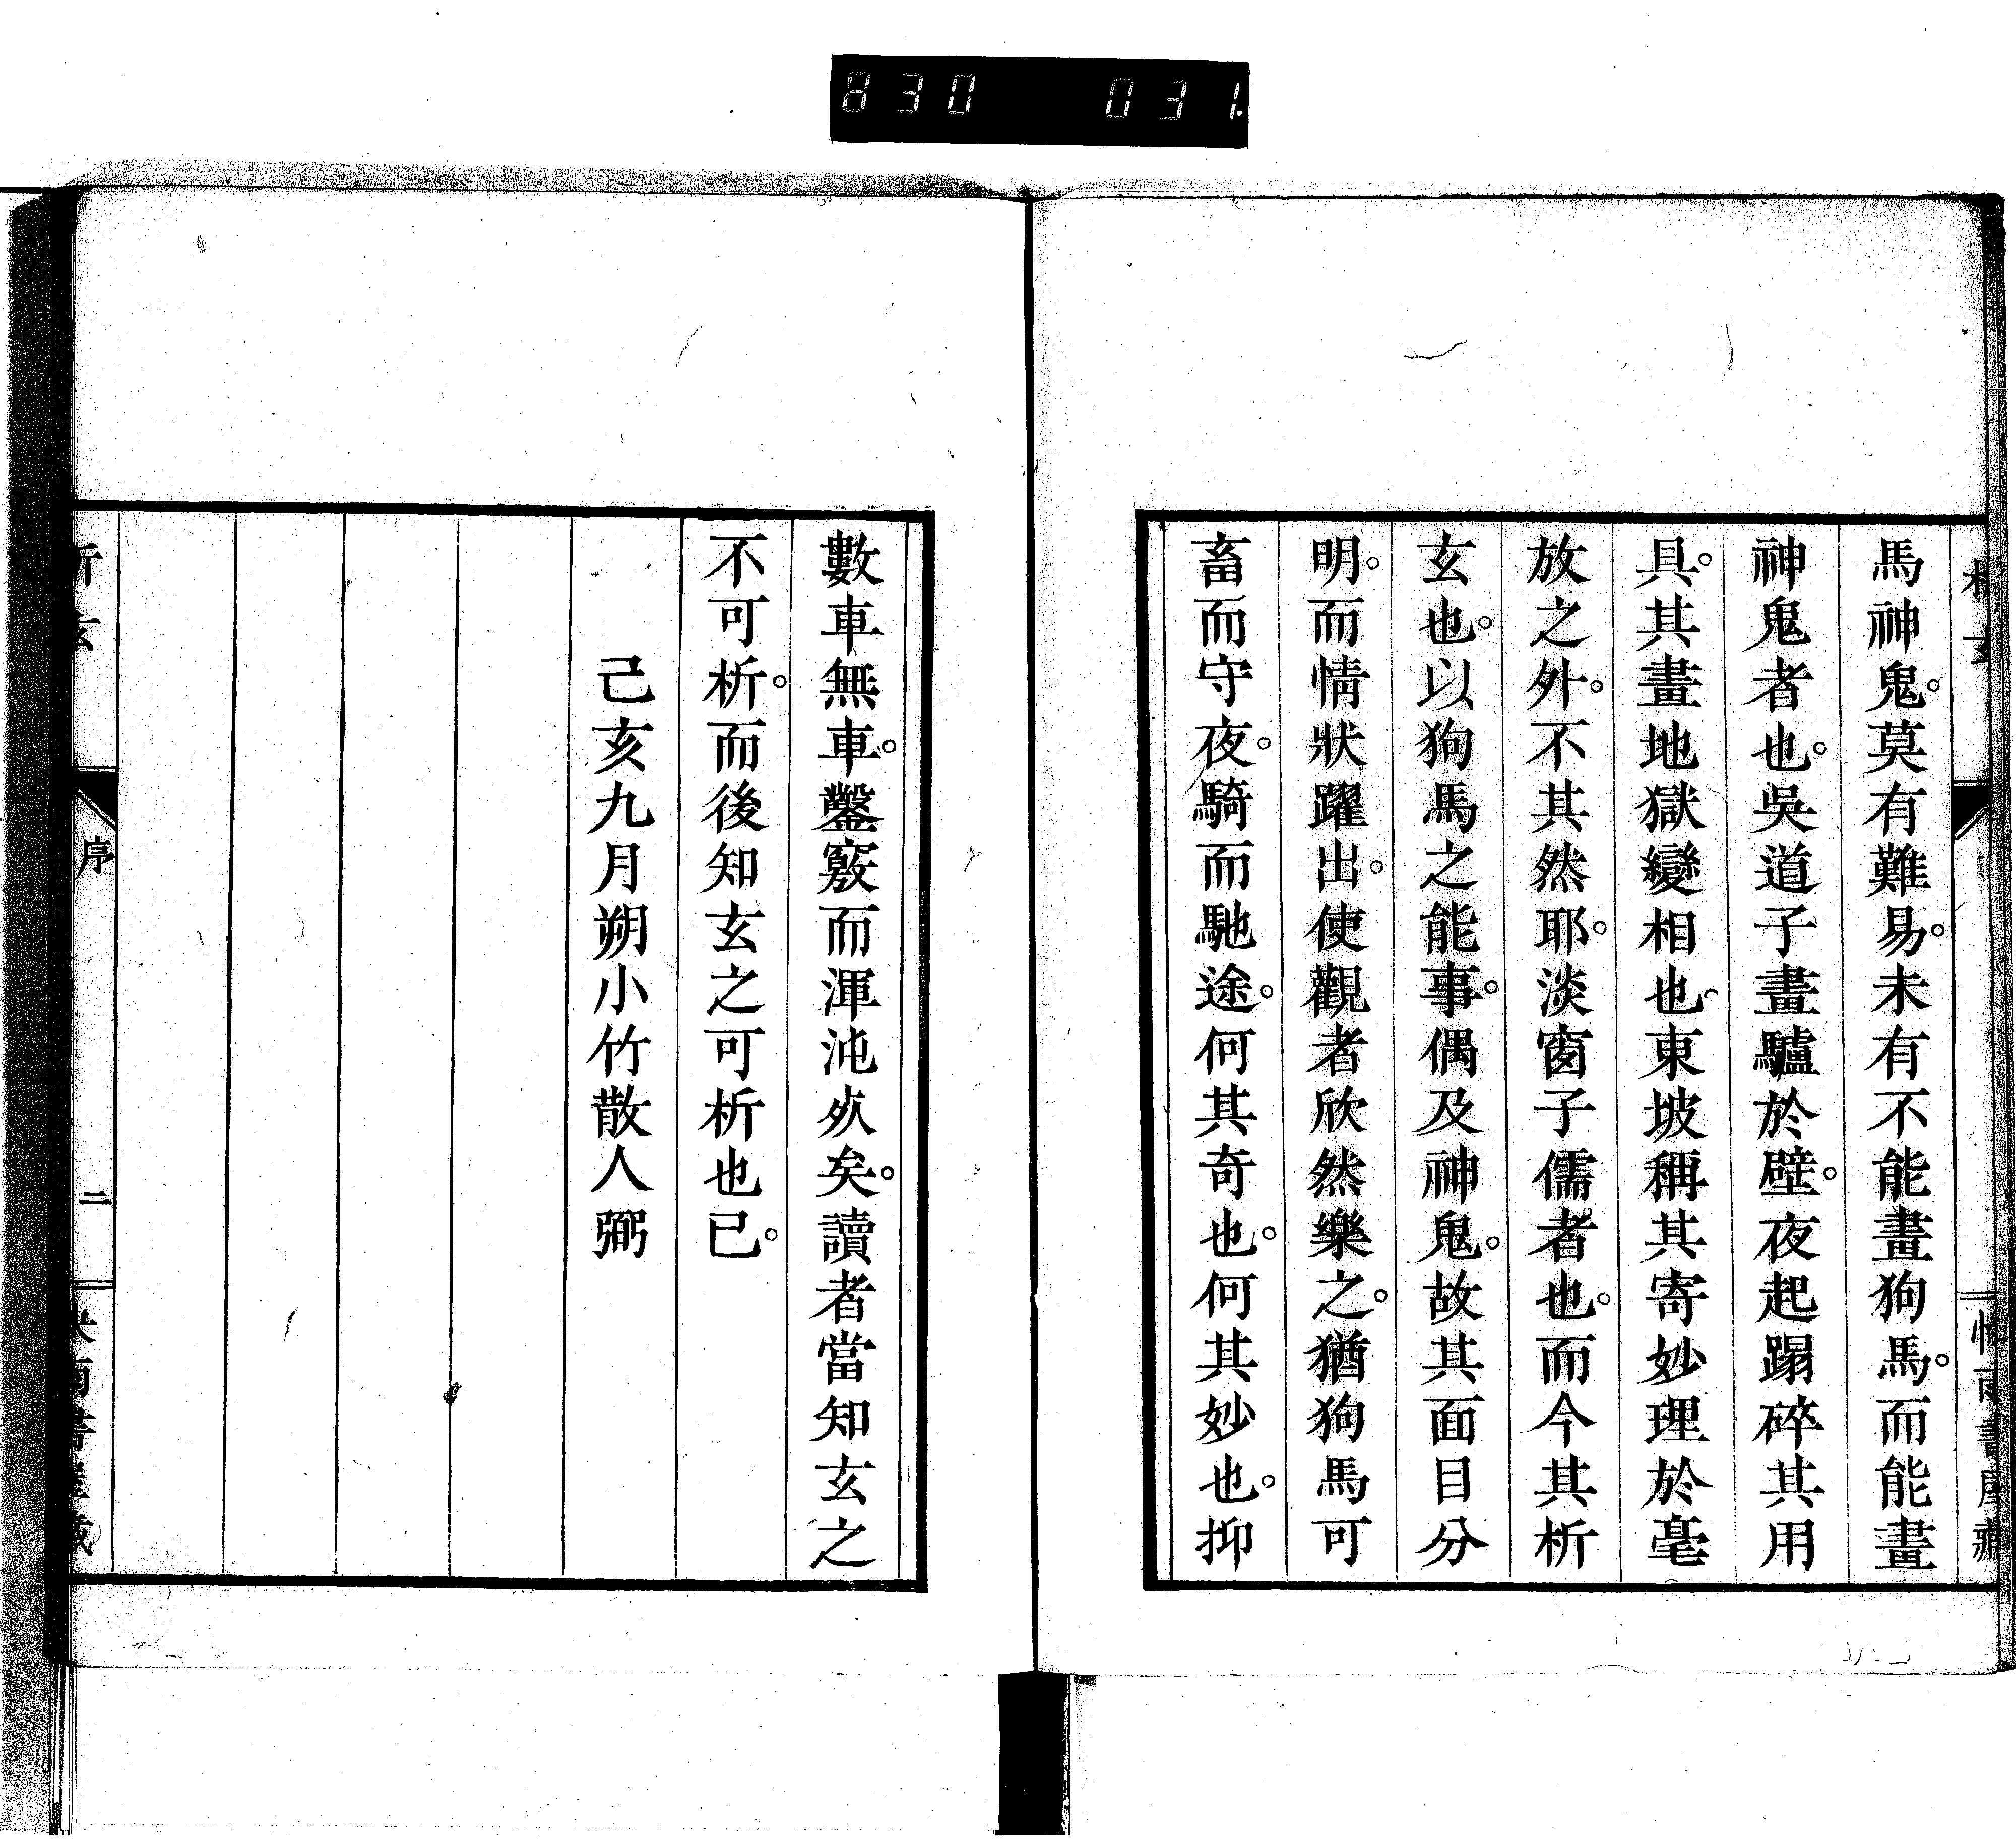 830 031.
馬神鬼。莫有難易。未有不能畫狗馬。而能畫
神鬼者也。吳道子畫驢於壁。夜起蹋碎其用
具。其畫地獄變相也。東坡稱其寄妙理於毫
放之外。不其然耶。淡窗子儒者也。而今其析
玄也。以狗馬之能事。偶及神鬼。故其面目分
明。而情狀躍出。使觀者欣然樂之。猶狗馬可
畜而守夜。騎而馳途。何其奇也。何其妙也。抑
數車無車。鑿竅而渾沌死矣。讀者當知玄之
不可析。而後知玄之可析也已。
己亥九月朔小竹散人弼
析玄
序
二